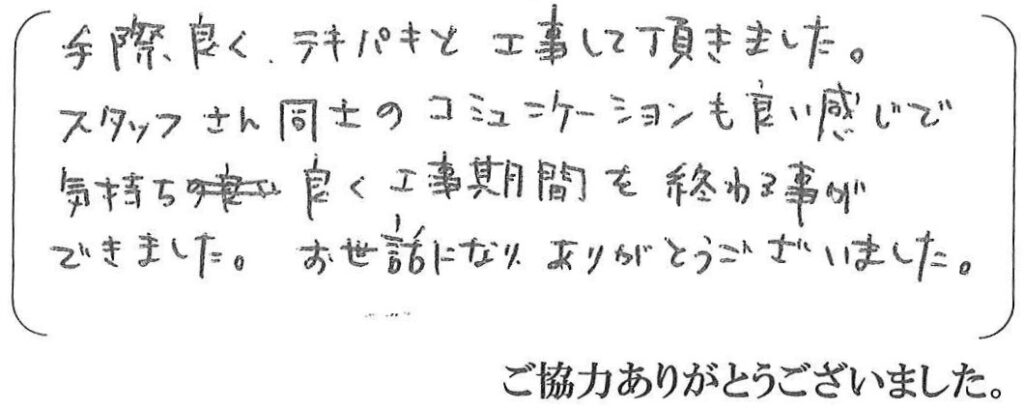 手際良く、テキパキと工事して頂きました。
スタッフさん同士のコミュニケーションも良い感じで
気持ち良く工事期間を終わる事が
できました。お世話になり、ありがとうございました。
ご協力ありがとうございました。